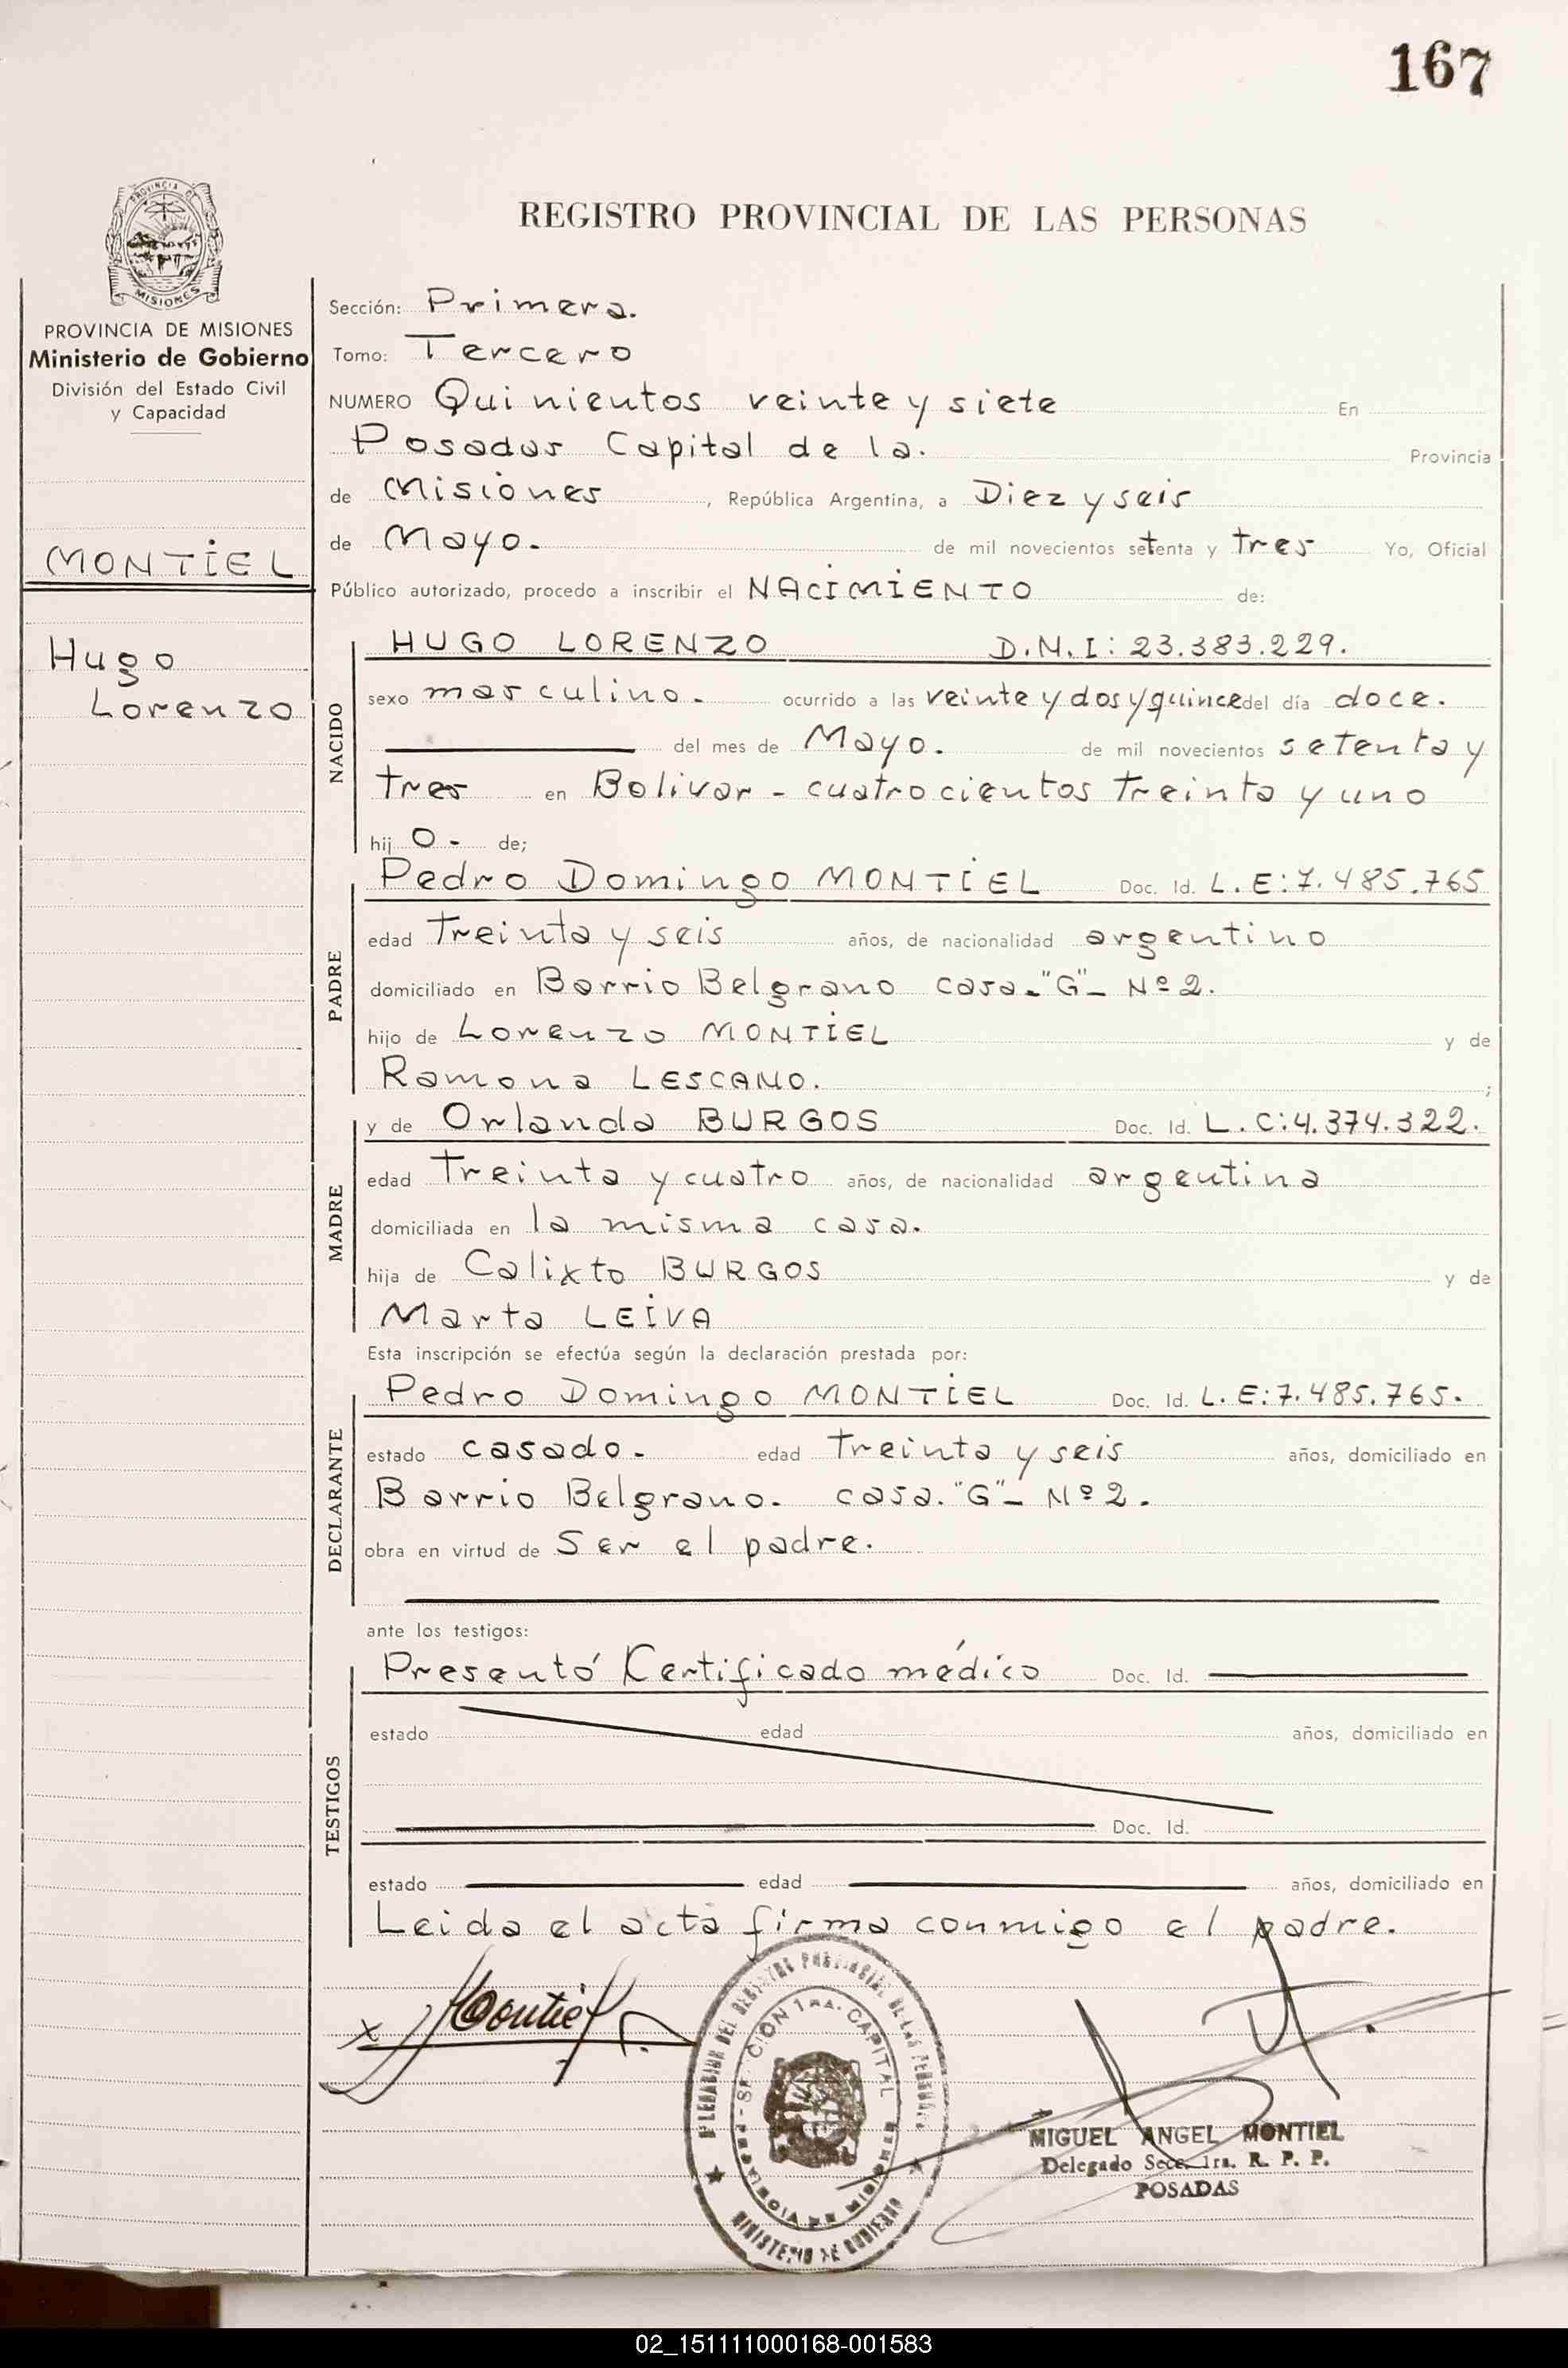 167
REGISTRO PROVINCIAL DE LAS PERSONAS
PROVINCIA DE
MISIONES
PROVINCIA DE MISIONES
Ministerio de Gobierno
División del Estado Civil
y Capacidad
MONTIEL
Hugo
Lorenzo
Sección: Primera.
Tomo: Tercero
NUMERO Quinientos veinte y siete En
Posadas Capital de la. Provincia
de Misiones, República Argentina, a Diez y seis
de Mayo. de mil novecientos setenta y tres Yo, Oficial
Público autorizado, procedo a inscribir el NACIMIENTO de:
NACIDO
HUGO LORENZO D.N.I: 23.383.229.
sexo masculino. ocurrido a las veinte y dos y quince del día doce.
del mes de Mayo. de mil novecientos setenta y
tres en Bolivar - cuatrocientos treinta y uno
hijo. de;
PADRE
Pedro Domingo MONTIEL Doc. Id. L.E:7.485.765
edad Treinta y seis años, de nacionalidad argentino
domiciliado en Barrio Belgrano casa. "G" - Nº 2.
hijo de Lorenzo MONTIEL y de
Ramona LESCANO. ;
MADRE
y de Orlanda BURGOS Doc. Id. L.C:4.374.322.
edad Treinta y cuatro años, de nacionalidad argentina
domiciliada en la misma casa.
hija de Calixto BURGOS y de
Marta LEIVA
Esta inscripción se efectúa según la declaración prestada por:
DECLARANTE
Pedro Domingo MONTIEL Doc. Id. L.E:7.485.765.
estado casado. edad Treinta y seis años, domiciliado en
Barrio Belgrano. casa. "G" - Nº 2.
obra en virtud de Ser el padre.
ante los testigos:
TESTIGOS
Presentó Certificado médico Doc. Id.
estado edad años, domiciliado en
Doc. Id.
estado edad años, domiciliado en
Leida el acta firma conmigo el padre.
x Montiel
REGISTRO PROVINCIAL DE LAS PERSONAS
SECCION 1RA. CAPITAL
PROVINCIA DE MISIONES
MINISTERIO DE GOBIERNO
MIGUEL ANGEL MONTIEL
Delegado Secc. 1ra. R. P. P.
POSADAS
02_151111000168-001583